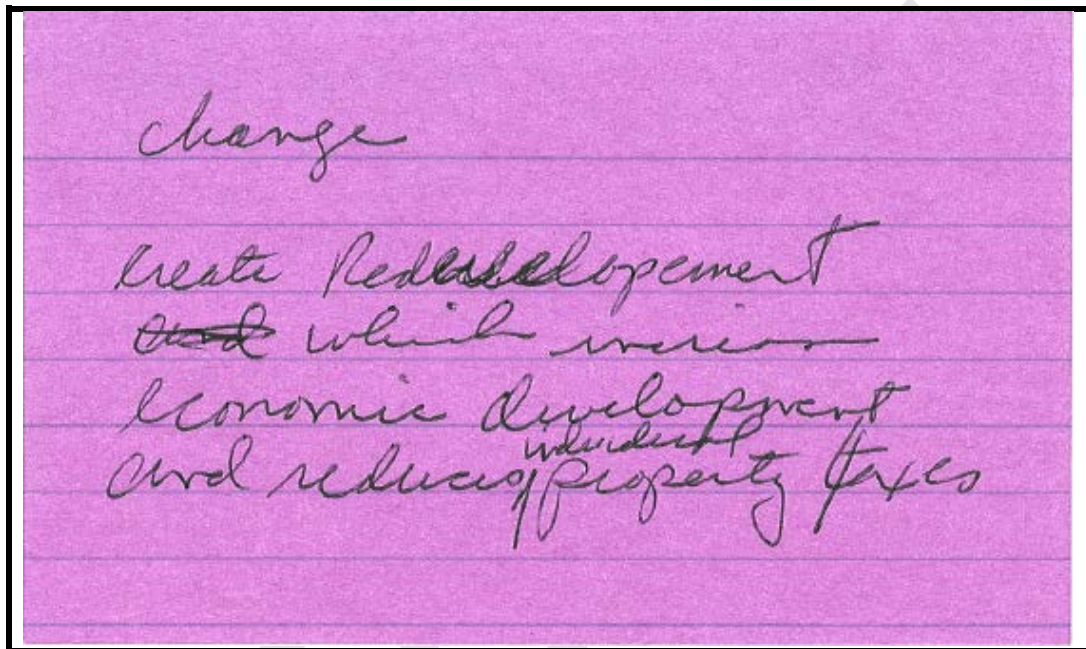 change
create Redevelopement
and which increase
economic development
and reduces individual property taxes